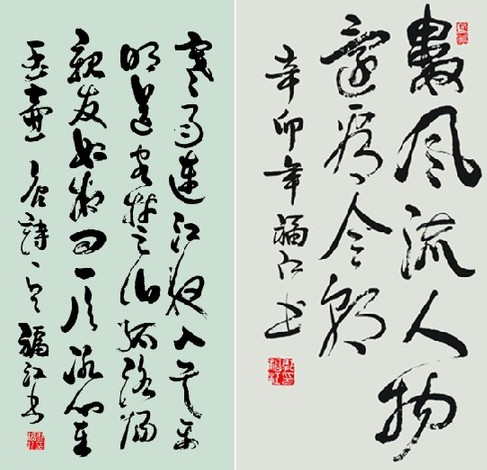 寒雨連江夜入吴平
明送客楚山孤洛陽
親友如相问一片冰心在
玉壶 唐詩一首 福江书
數風流人物
還看今朝
辛卯年福江书